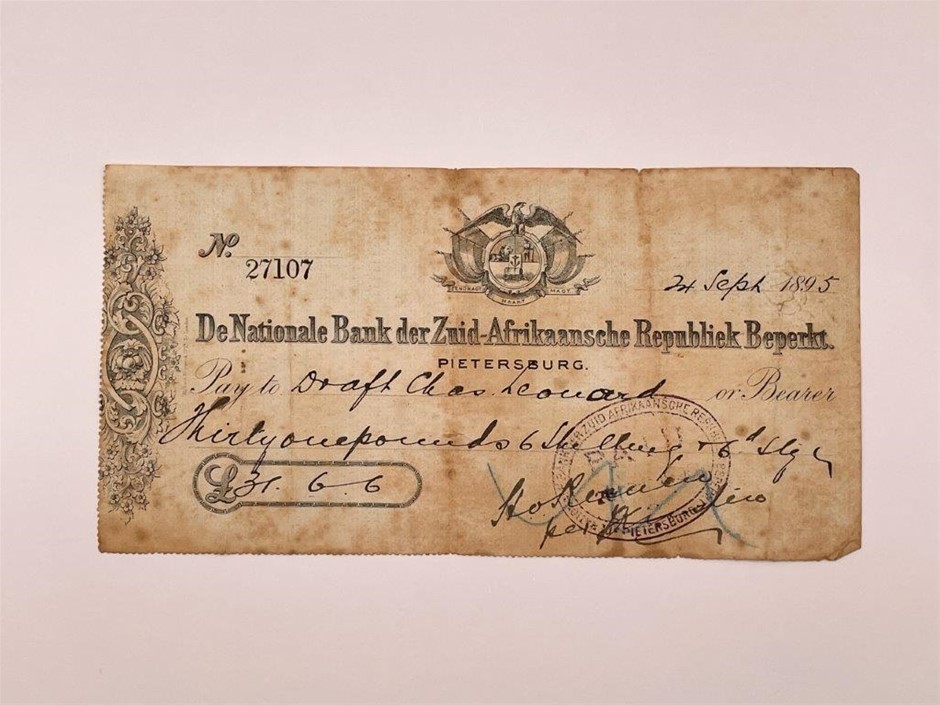 No.
27107
EENDRAGT MAAKT MAGT
24 Sept 1895
De Nationale Bank der Zuid-Afrikaansche Republiek Beperkt.
PIETERSBURG.
Pay to Draft Chas. Leonard or Bearer
Thirty one pounds 6 Shillings & 6d Stg
£31.6.6
ZUID AFRIKAANSCHE REPUBLIEK
PIETERSBURG
per